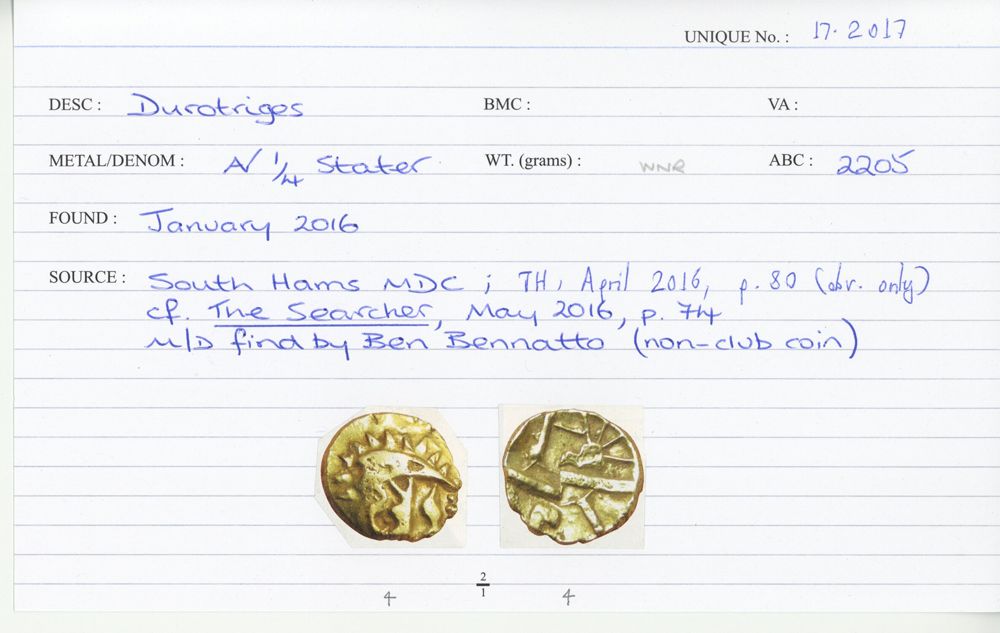 UNIQUE No. : 17. 2017
DESC : Durotriges BMC : VA :
METAL/DENOM : A/ 1/4 Stater WT. (grams) : WNR ABC : 2205
FOUND : January 2016
SOURCE : South Hams MDC ; TH, April 2016, p. 80 (obv. only)
cf. The Searcher, May 2016, p. 74
M/D find by Ben Bennatto (non-club coin)
2
1
4 4